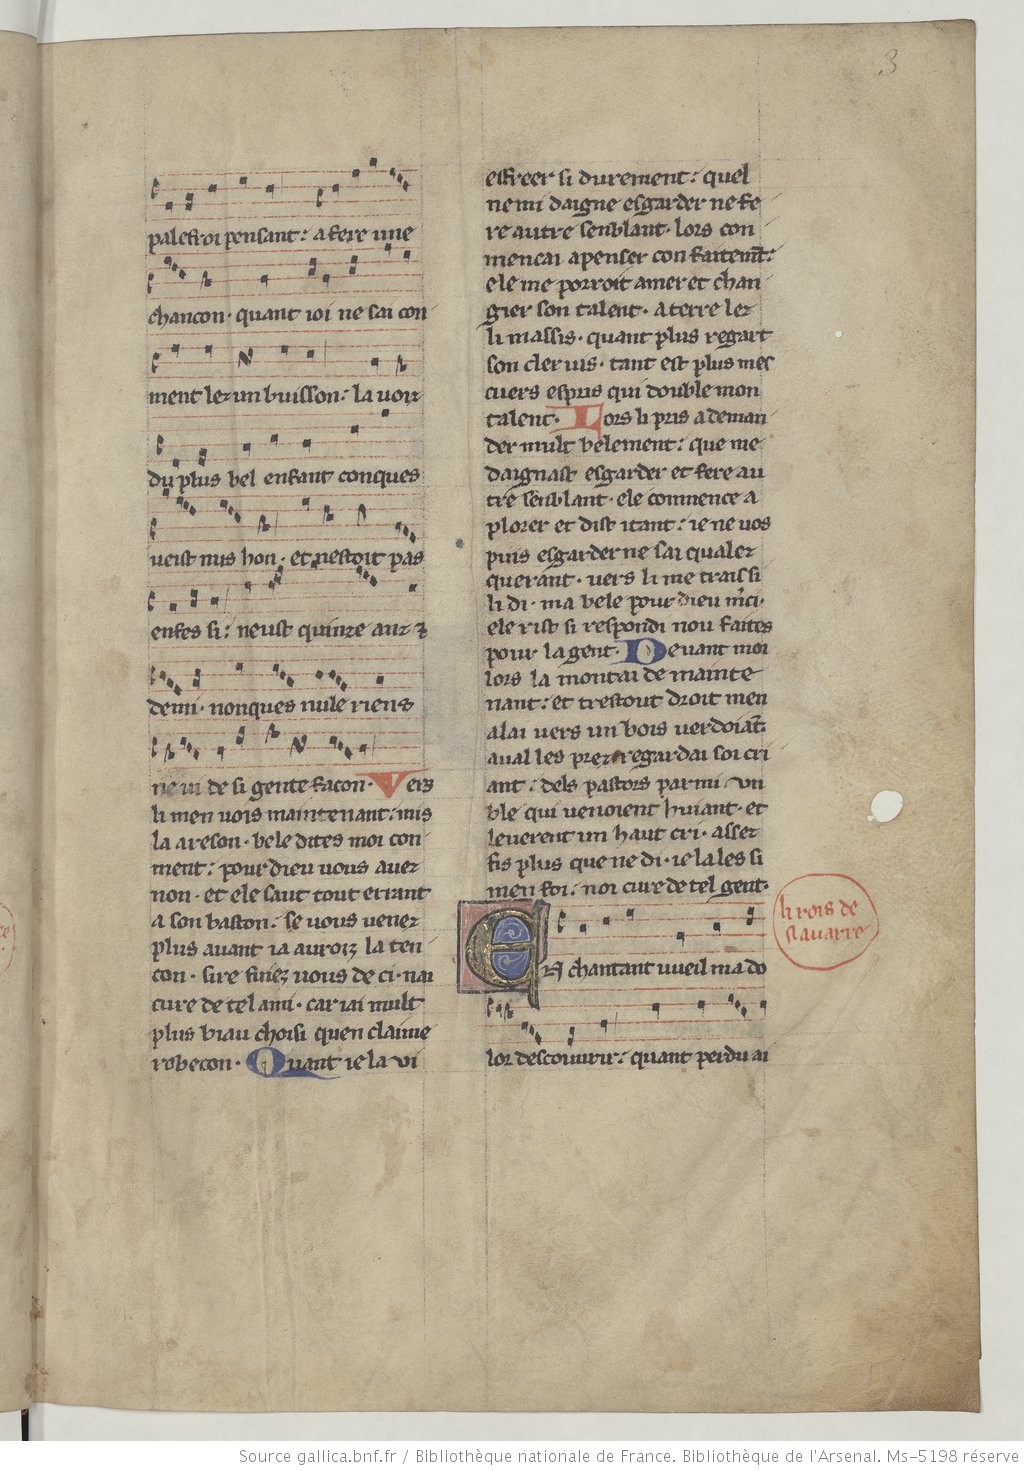 3
palefroi pensant: a fere une
chancon· quant ioi ne sai con
ment lez un buisson: la uoiz
du plus bel enfant conques
ueist nus hon· et nestoit pas
enfes si: neust quinze anz &
demi· nonques nule riens
ne ui de si gente facon· Vers
li men uois maintenant: mis
la a reson· bele dites moi con
ment: pour dieu uous auez
non· et ele saut tout errant
a son baston: se uous uenez
plus auant ia auroiz la ten
con· sire fuiez uous de ci· nai
cure de tel ami· car iai mult
plus biau choisi quen claime
robecon· Quant ie la vi
esfreer si durement: quel
ne mi daigne esgarder ne fe
re autre senblant· lors con
mencai a penser confaitemt:
ele me porroit amer et chan
gier son talent· a terre lez
li massis· quant plus regart
son cler uis· tant est plus mes
cuers espris qui double mon
talent· Lors li pris a deman
der mult belement: que me
daignast esgarder et fere au
tre senblant· ele commence a
plorer et dist itant: ie ne uos
puis esgarder ne sai qualez
querant· uers li me trais si
li di· ma bele pour dieu mci·
ele rist si respondi nou faites
pour la gent· Deuant moi
lors la montai de mainte
nant: et trestout droit men
alai uers un bois uerdoiat:
aual les prez regardai soi cri
ant: dels pastors parmi un
ble qui uenoient huiant· et
leuerent un haut cri· assez
fis plus que ne di· ie la les si
men foi: noi cure de tel gent·
li rois de
nauarre
EN chantant vueil ma do
lor descouurir: quant perdu ai
Source gallica.bnf.fr / Bibliothèque nationale de France. Bibliothèque de l'Arsenal. Ms-5198 réserve